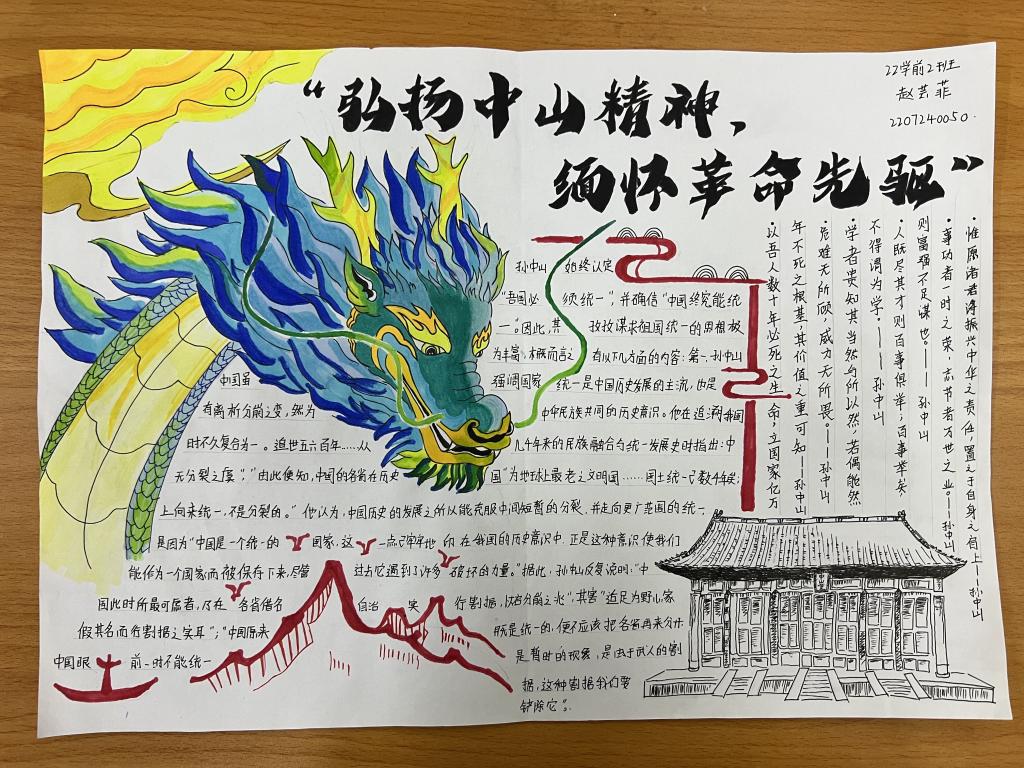 “弘扬中山精神，
缅怀革命先驱”
22学前2班
赵芸菲
2207240050.
孙中山 始终认定
“吾国必 须统一”，并确信“中国终究能统
一”。因此，其 孜孜谋求祖国统一的思想极
为丰富，概而言之 有以下几方面的内容：第一，孙中山
强调国家 统一是中国历史发展的主流，也是
中国虽
有离析分崩之变，然为 中华民族共同的历史意识。他在追溯我国
时不久复合为一。近世五六百年……从 几千年来的民族融合与统一发展史时指出：中
无分裂之虞”；“由此便知，中国的各省在历史 国“为地球上最老之文明国……国土统一已数千年矣；
上向来统一，不是分裂的。”他认为，中国历史的发展之所以能克服中间短暂的分裂，并走向更广范围的统一，
是因为“中国是一个统一的 国家，这 一点已牢牢地 印 在我国的历史意识中，正是这种意识使我们
能作为一个国家而被保存下来，尽管 过去它遇到了许多 破坏的力量。”据此，孙中山反复说明：“中
因此时所最可虑者，乃在 各省借名 自治 实 行割据，以启分崩之兆”，其害“适足为野心家
假其名而行割据之实耳”；“中国原来 既是统一的，便不应该把各省再来分开
中国眼 前一时不能统一 是暂时的现象，是由于武人的割
据，这种割据我们要
铲除它”。
·惟愿诸君将振兴中华之责任，置之于自身之肩上——孙中山
·事功者一时之荣，志节者万世之业。——孙中山
则富强不足谋也。——孙中山
·人既尽其才，则百事俱举；百事举矣
不得谓为学。——孙中山
·学者贵知其当然与所以然，若偶能然
·危难无所顾，威力无所畏。——孙中山
年不死之根基，其价值之重可知——孙中山
·以吾人数十年必死之生命，立国家亿万